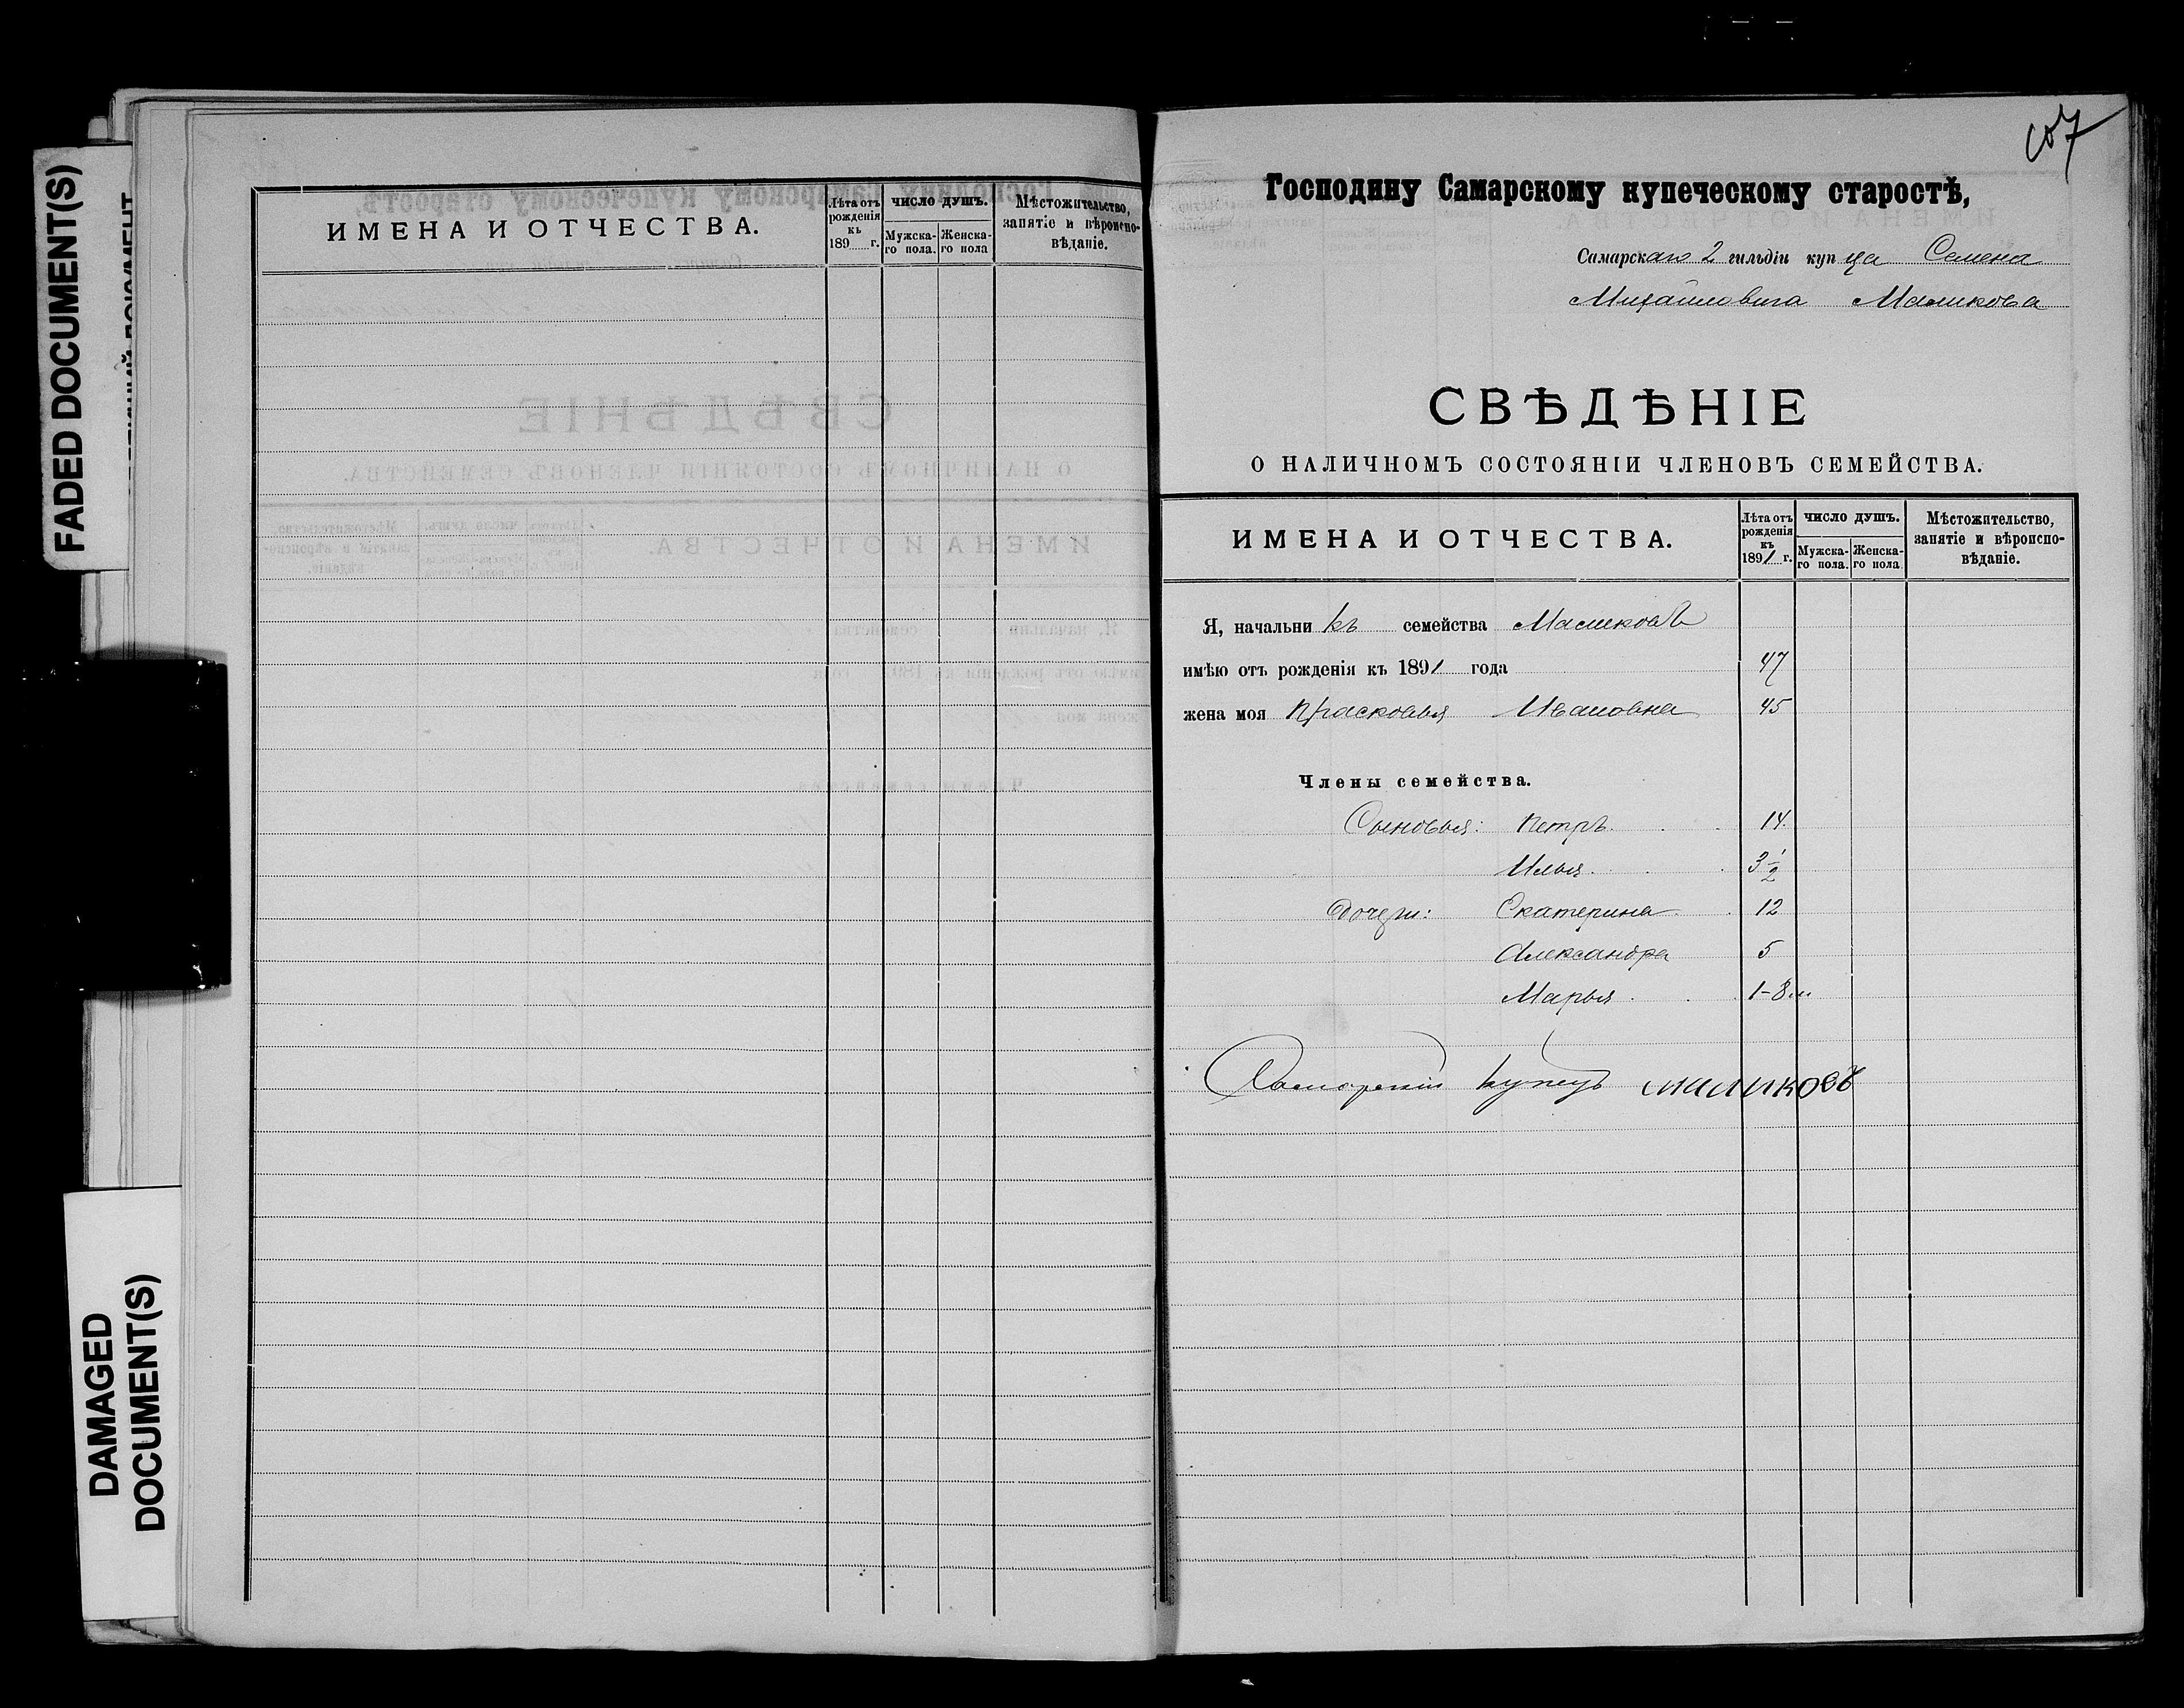 FADED DOCUMENT(S)
DAMAGED
DOCUMENT(S)
ИМЕНА И ОТЧЕСТВА.
Лѣта отъ рожденія къ 189 г.
число душъ.
Мужска-го пола.
Женска-го пола
Мѣстожительство, занятіе и вѣроиспо-вѣданіе.
107
Господину Самарскому купеческому старостѣ,
Самарскаго 2 гильдіи купца Семена
Михайловича Маликова
СВѢДѢНІЕ
О НАЛИЧНОМЪ СОСТОЯНІИ ЧЛЕНОВЪ СЕМЕЙСТВА.
ИМЕНА И ОТЧЕСТВА.
Лѣта отъ рожденія къ 1891 г.
число душъ.
Мужска-го пола.
Женска-го пола
Мѣстожительство, занятіе и вѣроиспо-вѣданіе.
Я, начальникъ семейства Маликовъ
имѣю отъ рожденія къ 1891 года 47
жена моя Прасковья Ивановна 45
Члены семейства.
Сыновья: Петръ 14.
Илья 3 1/2
Дочери: Екатерина 12
Александра 5
Марья 1-8 м.
Самарскій купецъ Маликовъ